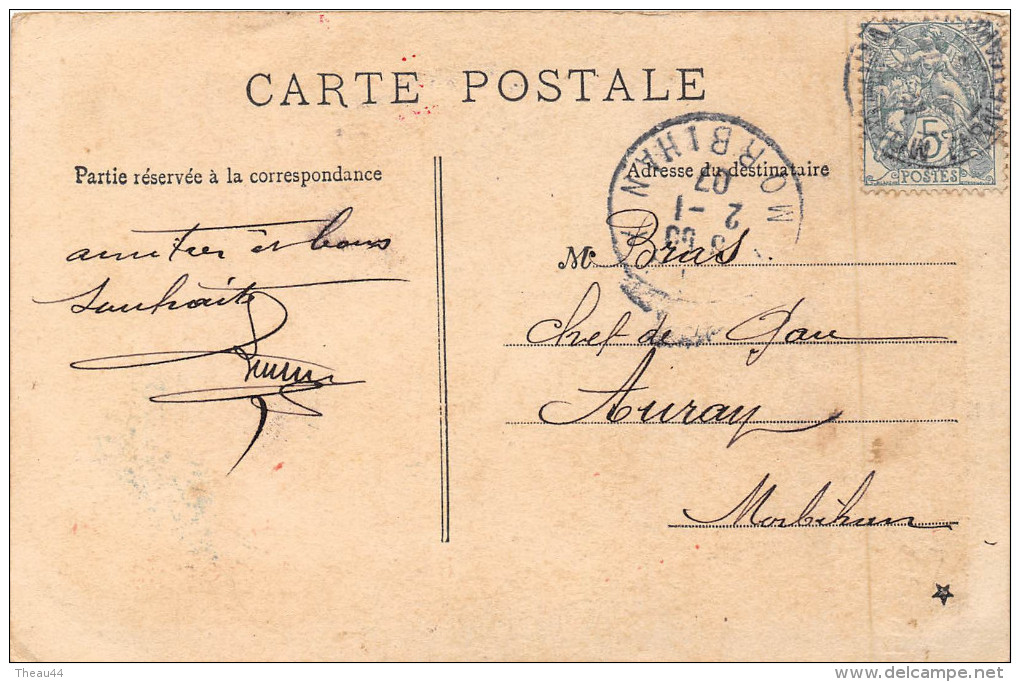 CARTE POSTALE
Partie réservée à la correspondance
Adresse du destinataire
amitiés et bons
souhaits
MORBIHAN
07
2 -1
5c
POSTES
M. Bras.
Chef de Gare
Auray
Morbihan
Theau44
www.delcampe.net